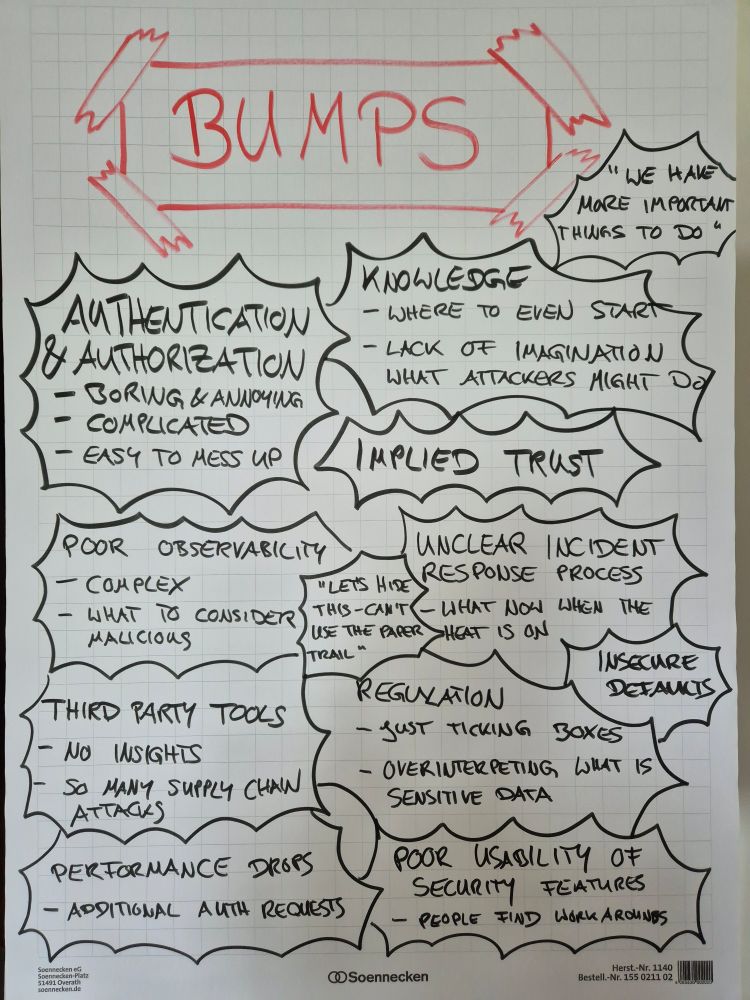 BUMPS
"WE HAVE
MORE IMPORTANT
THINGS TO DO"
AUTHENTICATION
& AUTHORIZATION
- BORING & ANNOYING
- COMPLICATED
- EASY TO MESS UP
KNOWLEDGE
- WHERE TO EVEN START
- LACK OF IMAGINATION
WHAT ATTACKERS MIGHT DO
IMPLIED TRUST
POOR OBSERVABILITY
- COMPLEX
- WHAT TO CONSIDER
MALICIOUS
"LET'S HIDE
THIS - CAN'T
USE THE PAPER
TRAIL"
UNCLEAR INCIDENT
RESPONSE PROCESS
- WHAT NOW WHEN THE
HEAT IS ON
INSECURE
DEFAULTS
THIRD PARTY TOOLS
- NO INSIGHTS
- SO MANY SUPPLY CHAIN
ATTACKS
REGULATION
- JUST TICKING BOXES
- OVERINTERPETING WHAT IS
SENSITIVE DATA
PERFORMANCE DROPS
- ADDITIONAL AUTH REQUESTS
POOR USABILITY OF
SECURITY FEATURES
- PEOPLE FIND WORKAROUNDS
Soennecken eG
Soennecken-Platz
51491 Overath
soennecken.de
Soennecken
Herst.-Nr. 1140
Bestell.-Nr. 155 0211 02